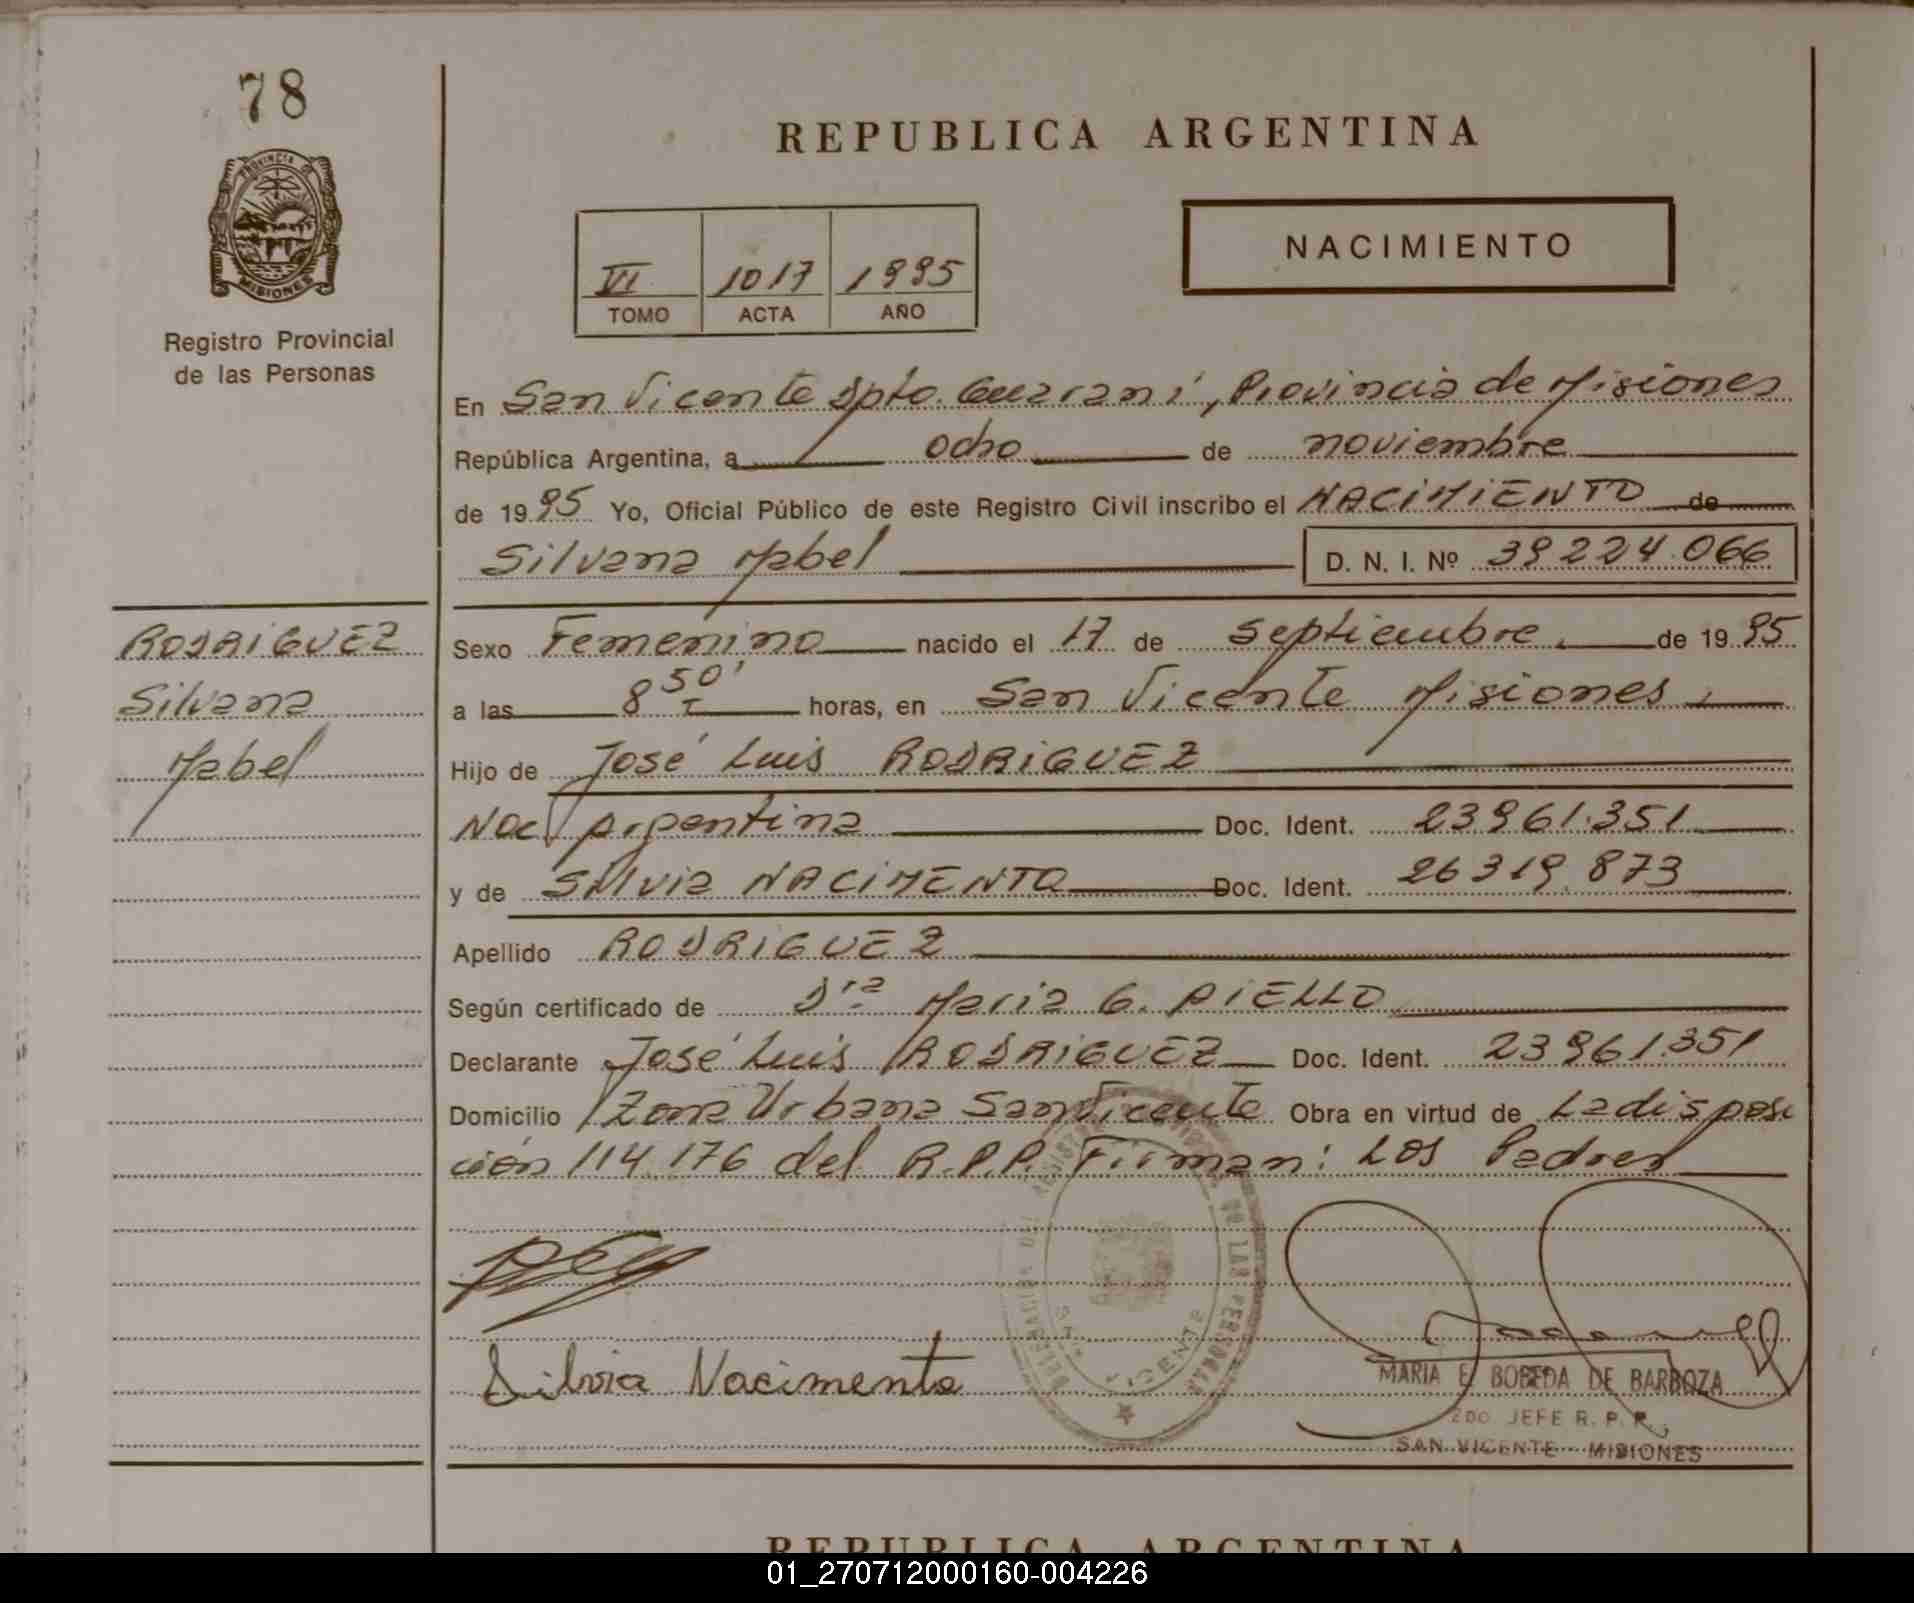 78
REPUBLICA ARGENTINA
PROVINCIA DE
MISIONES
NACIMIENTO
VI 1017 1995
TOMO ACTA AÑO
Registro Provincial
de las Personas
En San Vicente Dpto. Guaraní, Provincia de Misiones
República Argentina, a ocho de noviembre
de 1995 Yo, Oficial Público de este Registro Civil inscribo el NACIMIENTO de
Silvana Mabel D. N. I. Nº 39224.066
RODRIGUEZ
Silvana
Mabel
Sexo Femenino nacido el 17 de septiembre de 1995
a las 8 50' horas, en San Vicente Misiones.
Hijo de José Luis RODRIGUEZ
Nac Argentina Doc. Ident. 23961.351
y de Silvia NACIMENTO Doc. Ident. 26319.873
Apellido RODRIGUEZ
Según certificado de Dra Maria G. AIELLO
Declarante José Luis RODRIGUEZ Doc. Ident. 23961.351
Domicilio Zona Urbana San Vicente Obra en virtud de La disposi
ción 114.176 del R.P.P. Firman: Los Padres
Silvia Nacimento
VICENTE
MARIA E. BOBEDA DE BARBOZA
2DO JEFE R. P. P.
SAN VICENTE - MISIONES
REPUBLICA ARGENTINA
01_270712000160-004226